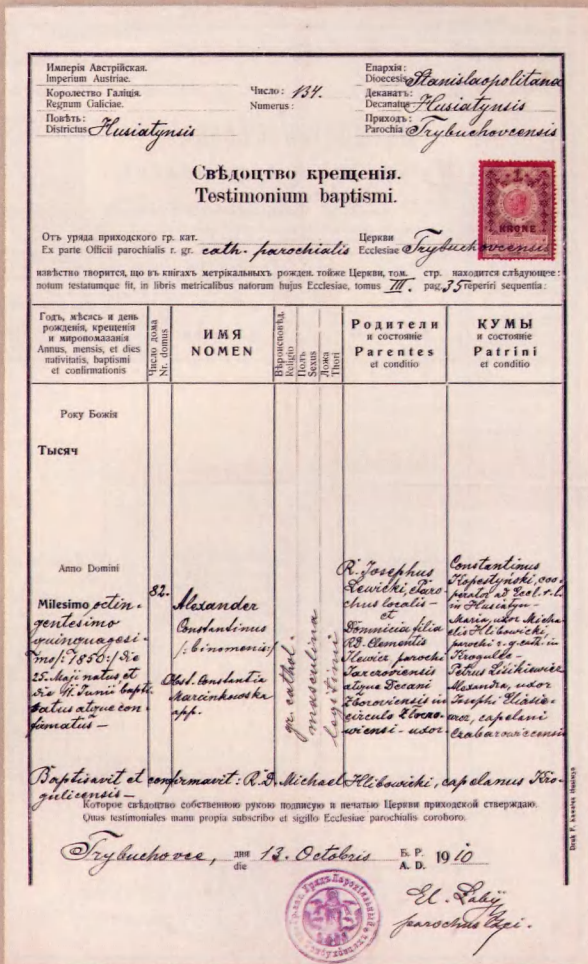 Имперія Австрійская.
Imperium Austriae.
Королество Галіція.
Regnum Galiciae.
Повѣтъ:
Districtus Husiatynsis
Число: 134.
Numerus:
Епархія:
Dioecesis Stanislaopolitana
Деканатъ:
Decanatus Husiatynsis
Приходъ:
Parochia Trybuchovcensis
Свѣдоцтво крещенія.
Testimonium baptismi.
1
KRONE
Отъ уряда приходского гр. кат. Церкви
Ex parte Officii parochialis r. gr. cath. parochialis Ecclesiae Trybuchovcensis
извѣстно творится, що въ книгахъ метрикальныхъ рожден. тойже Церкви, том. стр. находится слѣдующее:
notum testatumque fit, in libris metricalibus natorum hujus Ecclesiae, tomus III. pag. 35 reperiri sequentia:
Годъ, мѣсяць и день
рожденія, крещенія
и миропомазанія
Annus, mensis, et dies
nativitatis, baptismi
et confirmationis
Число дома
Nr. domus
ИМЯ
NOMEN
Вѣроисповѣд.
Religio
Полъ
Sexus
Ложа
Thori
Родители
и состояніе
Parentes
et conditio
КУМЫ
и состояніе
Patrini
et conditio
Року Божія
Тысяч
Anno Domini
Milesimo octin-
gentesimo
quinquagesi-
mo /: 1850 :/ die
25. Maji natus et
die 11. Junii bapti-
zatus atque con-
firmatus –
82.
Alexander
Constantinus
/: binomenis :/
Obst. Constantia
Marcinkowska
app.
gr. cathol.
masculina
legitimi
R. Josephus
Lewicki, Paro-
chus localis –
et
Domnicia filia
RD. Clementis
Ilewicz parochi
atque Decani
Zboroviensis in
circulo Zboro-
wiensi - uxor
Constantinus
Kopestyński, coo-
perator ad Eccl. r. l.
in Husiatyn –
Maria, uxor Micha-
elis Hlibowicki,
parochi r. g. cath. in
Krogulec –
Petrus Lisikiewicz
Alexandra, uxor
Josephi Eliasie-
wicz, capelani
Czabarowiecensis
Baptisavit et confirmavit: R. D. Michael Hlibowicki, capelanus Kro-
gulicensis –
Которое свѣдоцтво собственною рукою подписую и печатью Церкви приходской стверждаю.
Quas testimoniales manu propia subscribo et sigillo Ecclesiae parochialis coroboro.
Trybuchovce, дня 13. Octobris Б. Р. 1910
die A. D.
parochus